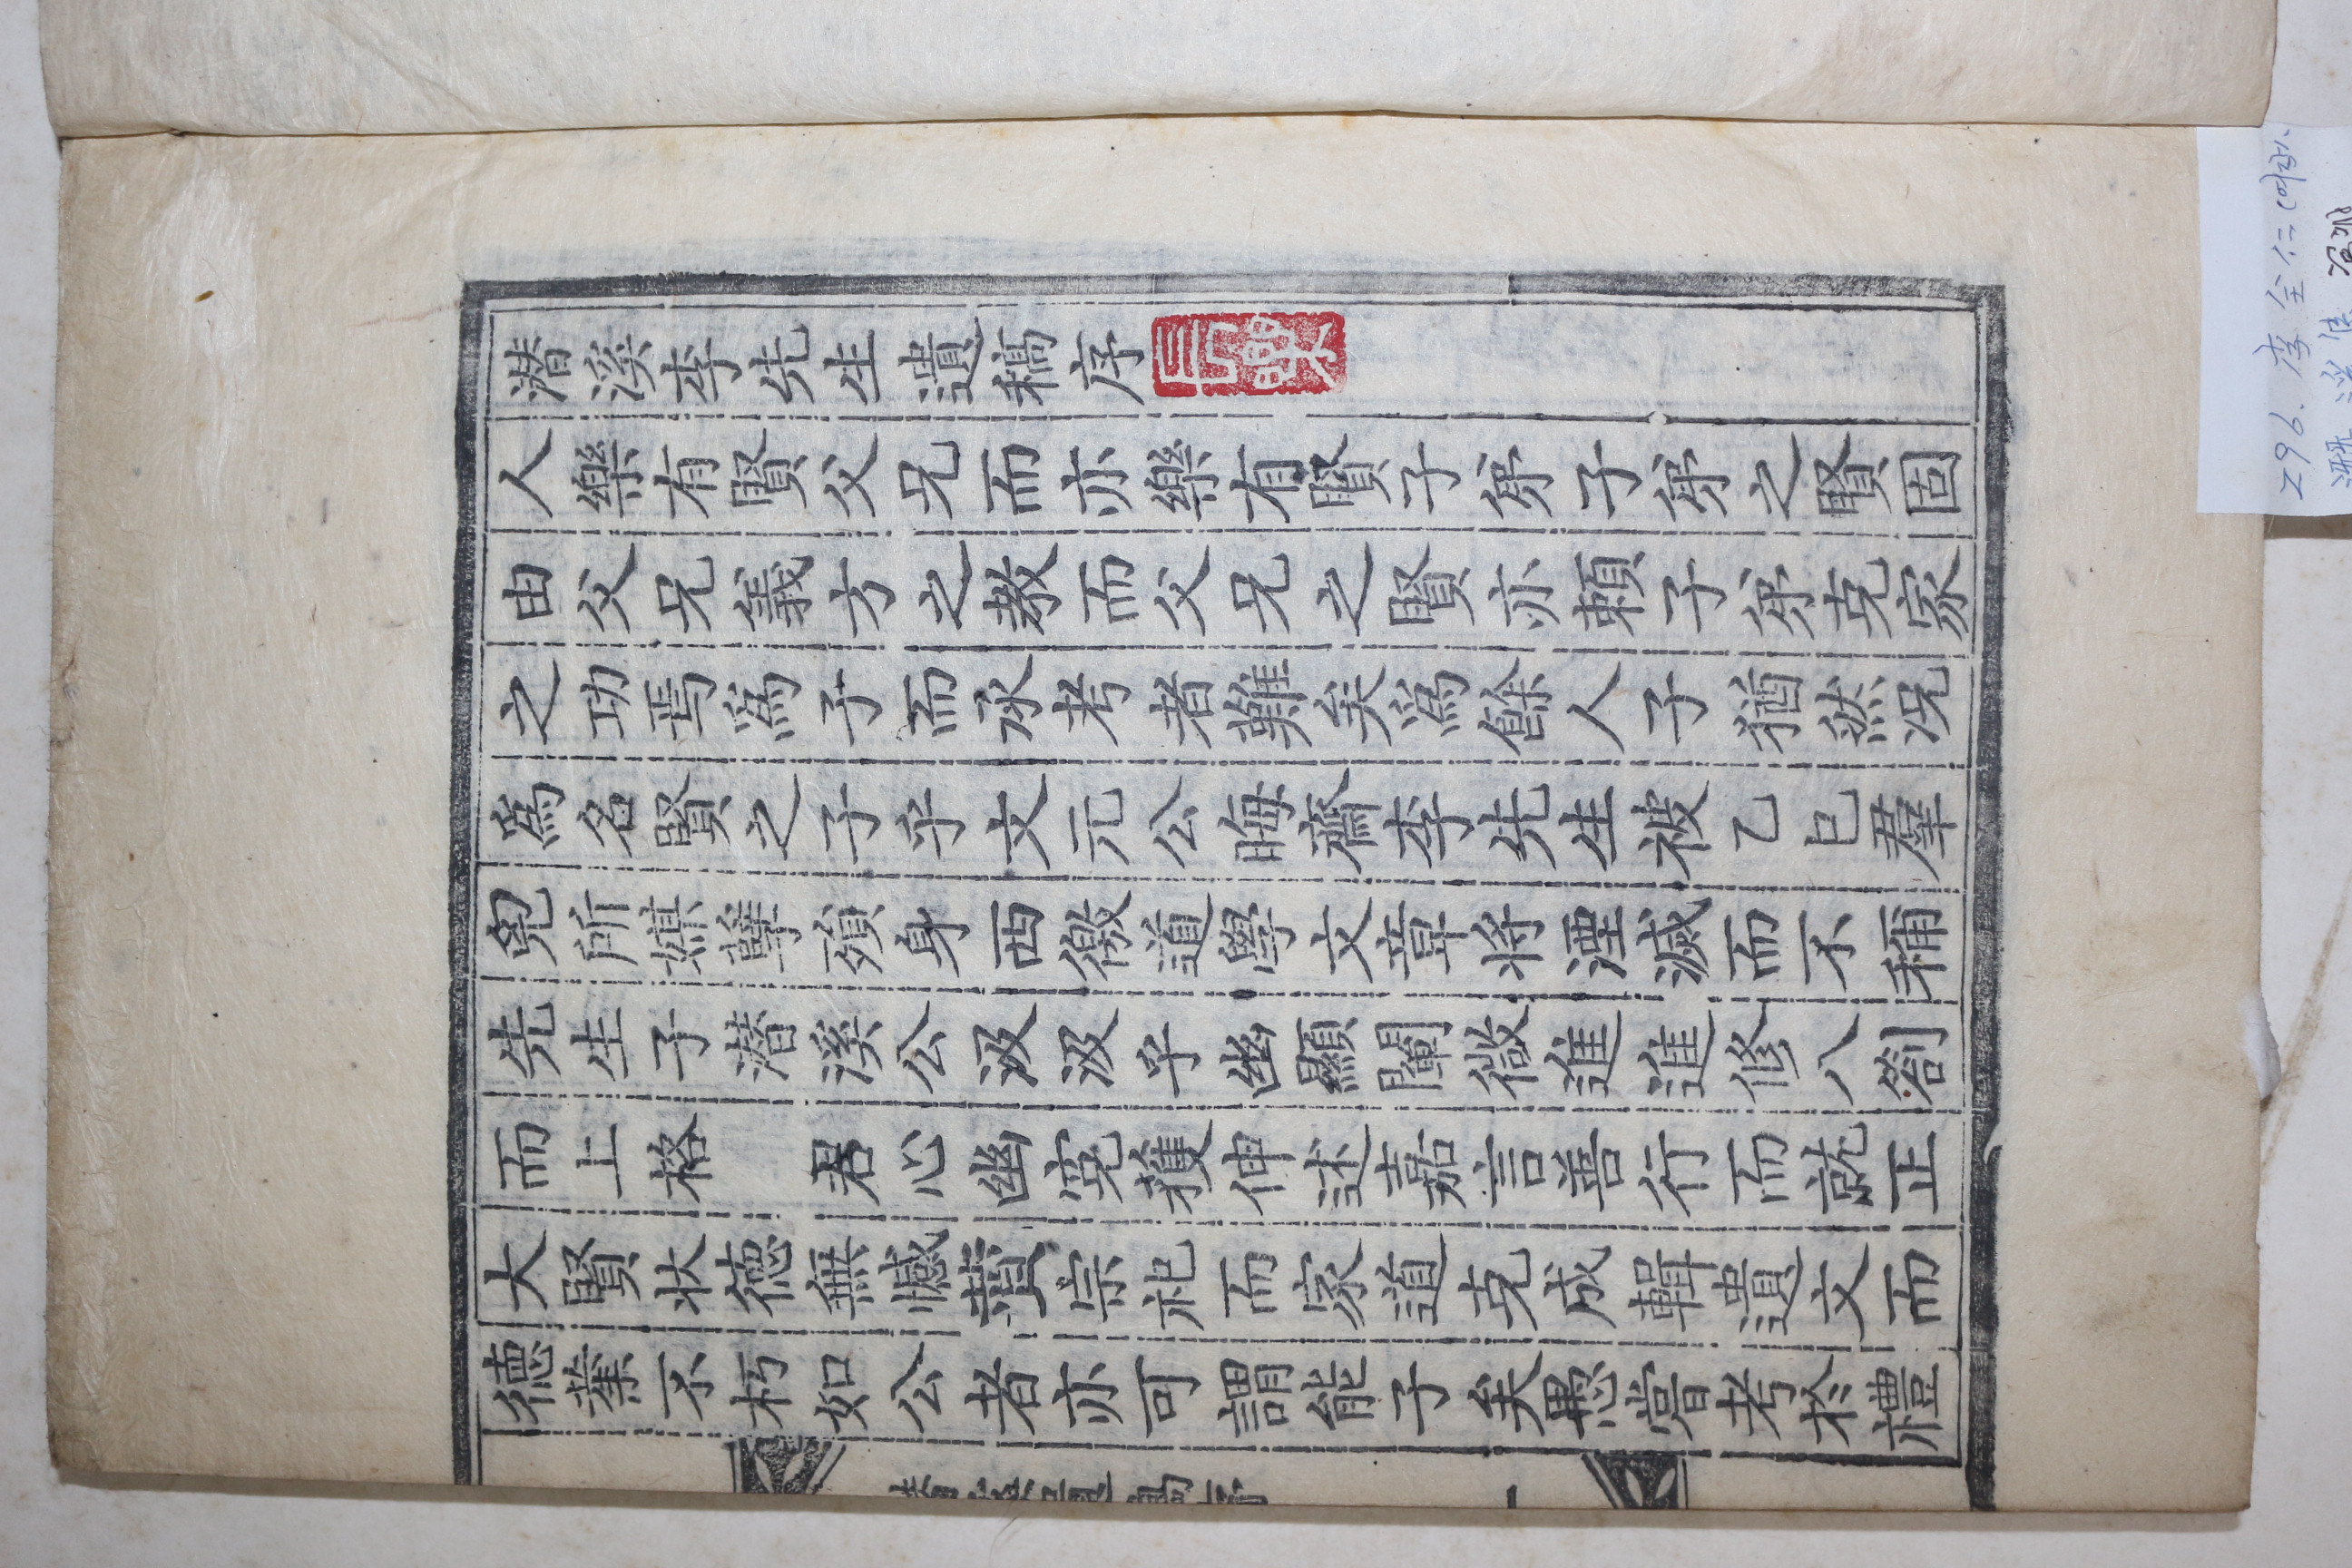 潛溪李先生遺稿序
人樂有賢父兄而亦樂有賢子弟子弟之賢固
由父兄義方之教而父兄之賢亦賴子弟克家
之功焉爲子而承考者難矣爲餘人子猶然况
爲名賢之子乎文元公晦齋李先生被乙巳羣
兇所媒孽殞身西徼道學文章将湮滅而不稱
先生子潛溪公汲汲乎幽顯闡微進進修八劄
而上格 君心幽寃獲伸述嘉言善行而就正
大賢状德無憾賛宗祀而家道克成輯遺文而
德業不朽如公者亦可謂能子矣愚嘗考於禮
一
296. 李全仁
溪